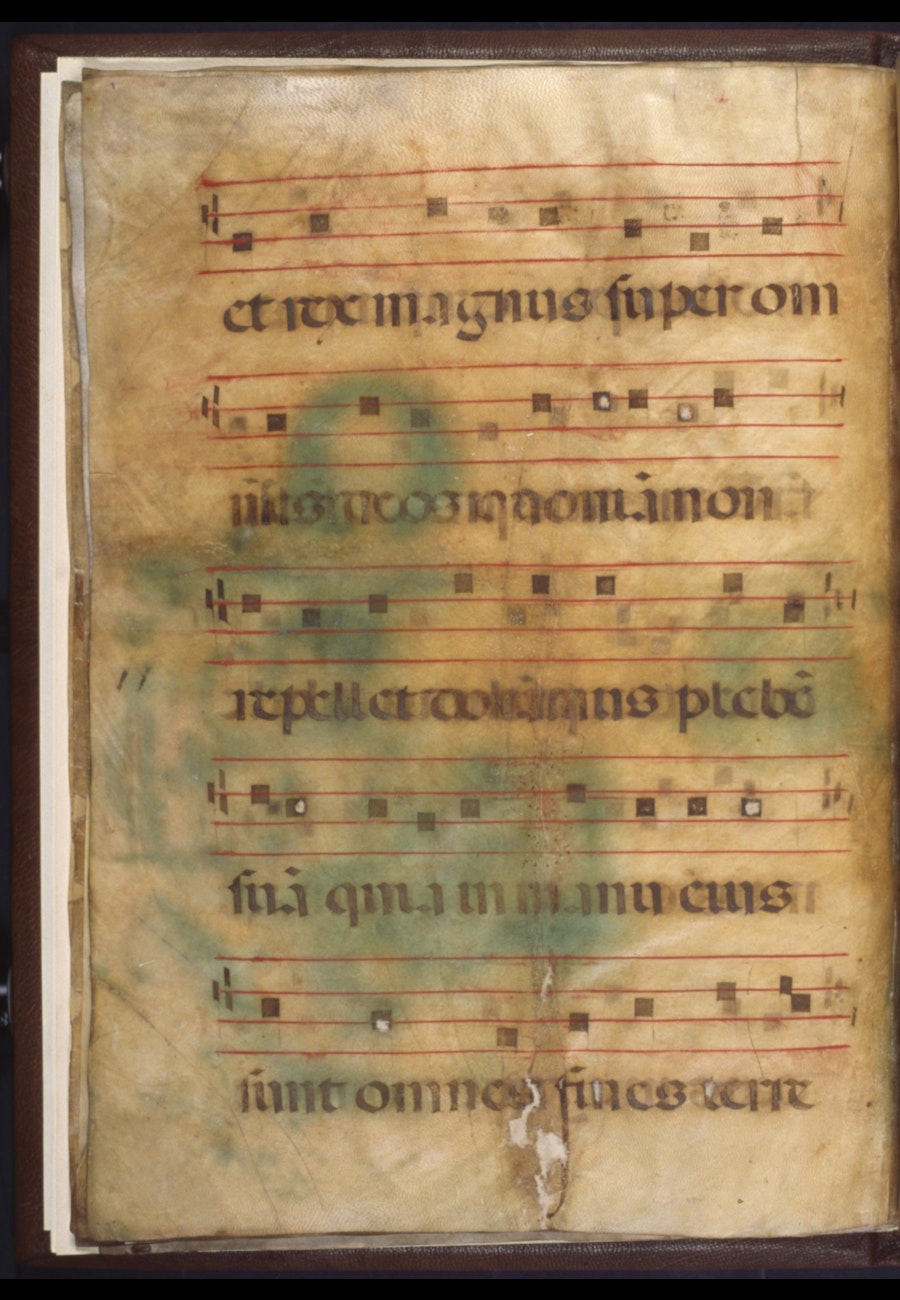 et rex magnus super om
nes deos quoniā non
repellet dominus plebē
suā quia in manu eius
sunt omnes fines terre